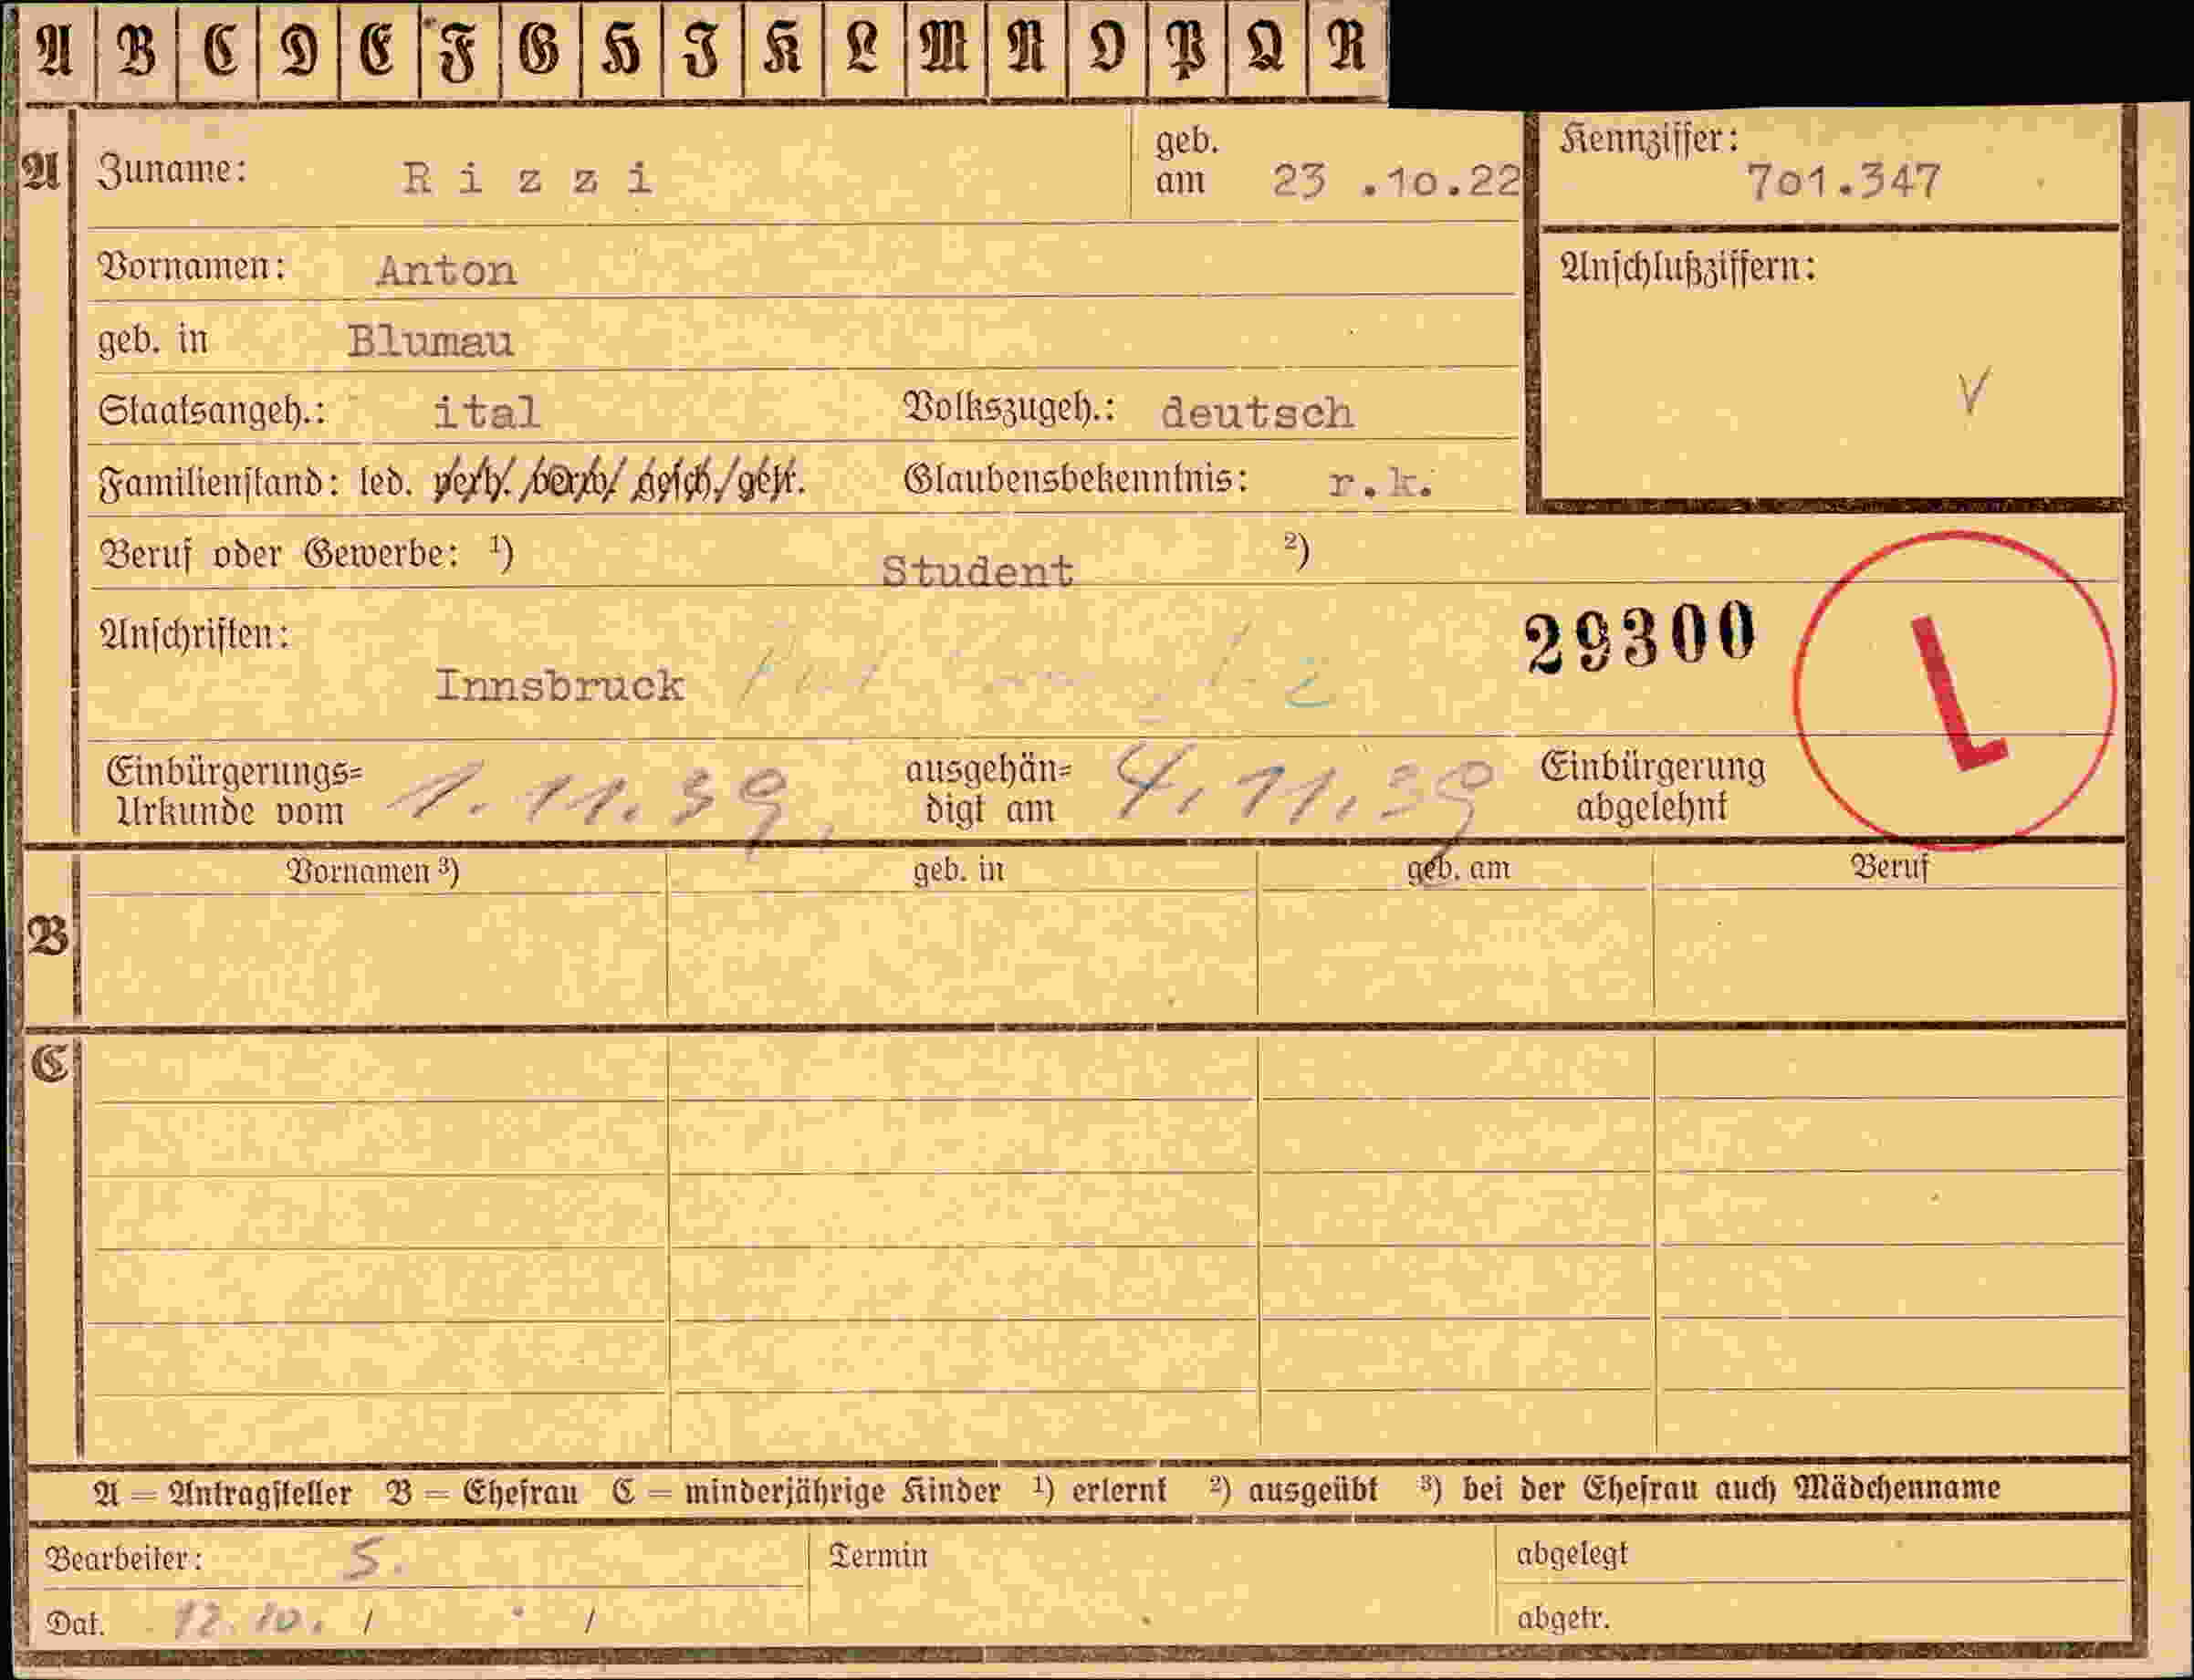 A B C D E F G H I K L M N O P Q R
A Zuname: Rizzi geb. am 23.10.22 Kennziffer: 701.347
Vornamen: Anton Anschlußziffern:
geb. in Blumau
V
Staatsangeh.: ital Volkszugeh.: deutsch
Familienstand: led. verh. verw. gesch. getr. Glaubensbekenntnis: r.k.
Beruf oder Gewerbe: ¹) Student ²)
Anschriften: 29300
Innsbruck L
Einbürgerungs=
Urkunde vom 1.11.39. ausgehän=
digt am 4.11.39 Einbürgerung
abgelehnt
Vornamen ³) geb. in geb. am Beruf
B
C
A = Antragsteller B = Ehefrau C = minderjährige Kinder ¹) erlernt ²) ausgeübt ³) bei der Ehefrau auch Mädchenname
Bearbeiter: S. Termin abgelegt
Dat. 12.10. / / abgetr.